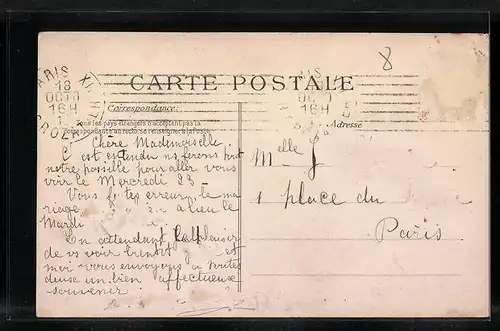 8
PARIS XI
18
OCTO
16H
CARTE POSTALE
Correspondance
Tous les pays étrangers n'acceptent pas la
correspondance au recto, se renseigner à la Poste
Adresse
Chère Mademoiselle
C'est entendu ns ferons tout
notre possible pour aller vous
voir le Mercredi 25
Vous faites erreur le ma
riage a lieu le
Mardi
En attendant le plaisir
de vs voir bientôt et
moi vous envoyons à toutes
deux un bien affectueux
souvenir
Melle J
1 place du
Paris